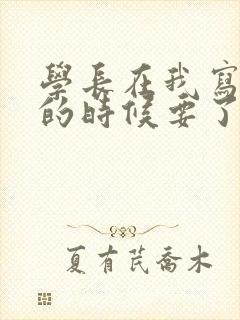 學長在我寫
的時候要了
夏有芪喬木